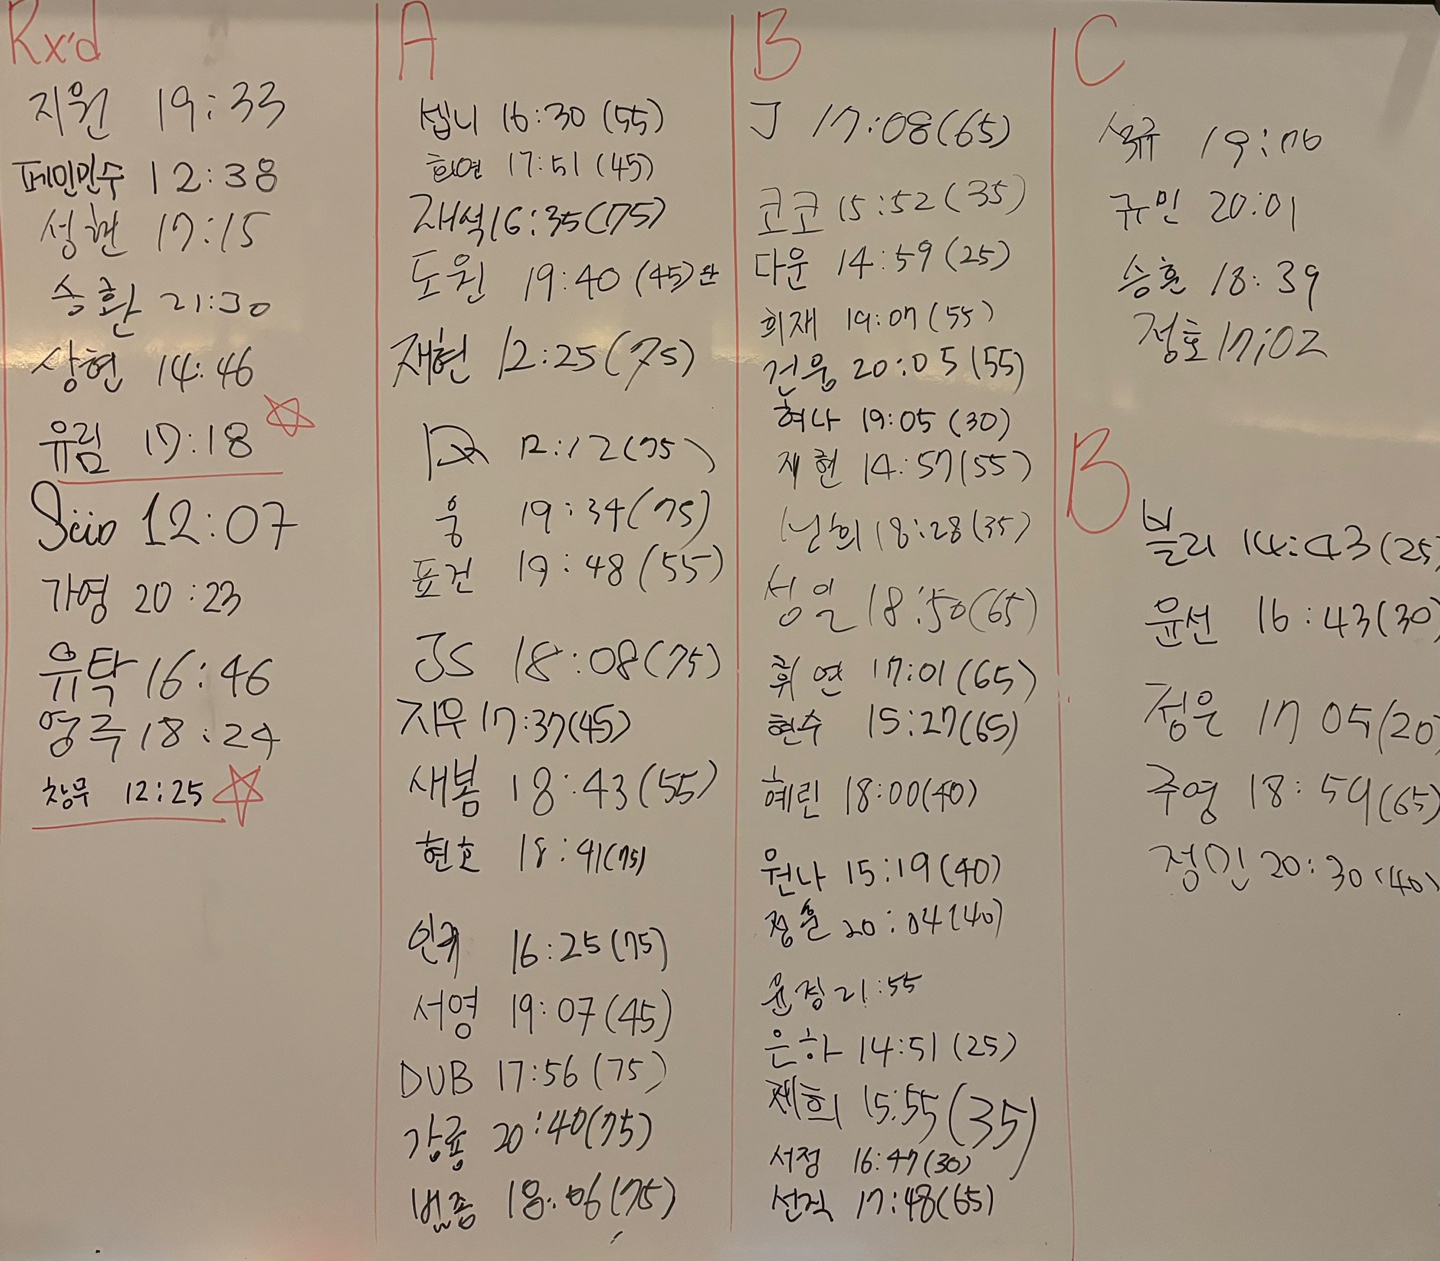 Rx'd
지원 19:33
페인민수 12:38
성현 17:15
승환 21:30
상현 14:46
유림 17:18
12:07
가영 20:23
유탁 16:46
영주 18:24
창무 12:25
A
셉니 16:30 (55)
희연 17:51 (45)
재석 16:35 (75)
도원 19:40 (45)
재현 12:25 (75)
12:12 (75)
웅 19:34 (75)
표건 19:48 (55)
JS 18:08 (75)
지우 17:37 (45)
새봄 18:43 (55)
현호 18:41 (75)
16:25 (75)
서영 19:07 (45)
DUB 17:56 (75)
강룡 20:40 (75)
범종 18:06 (75)
B
J 17:08 (65)
코코 15:52 (35)
다운 14:59 (25)
희재 19:07 (55)
건웅 20:05 (55)
혀나 19:05 (30)
재헌 14:57 (55)
남희 18:28 (35)
성일 18:50 (65)
휘연 17:01 (65)
현수 15:27 (65)
혜린 18:00 (40)
원나 15:19 (40)
정훈 20:04 (40)
윤정 21:55
은하 14:51 (25)
제희 15:55 (35)
서정 16:47 (30)
선직 17:48 (65)
C
석규
규민 20:01
승훈 18:39
정호 17:02
B
블리 14:43 (25)
윤선 16:43 (30)
정은 17 05 (20)
주영 18:59 (65)
정민 20:30 (40)